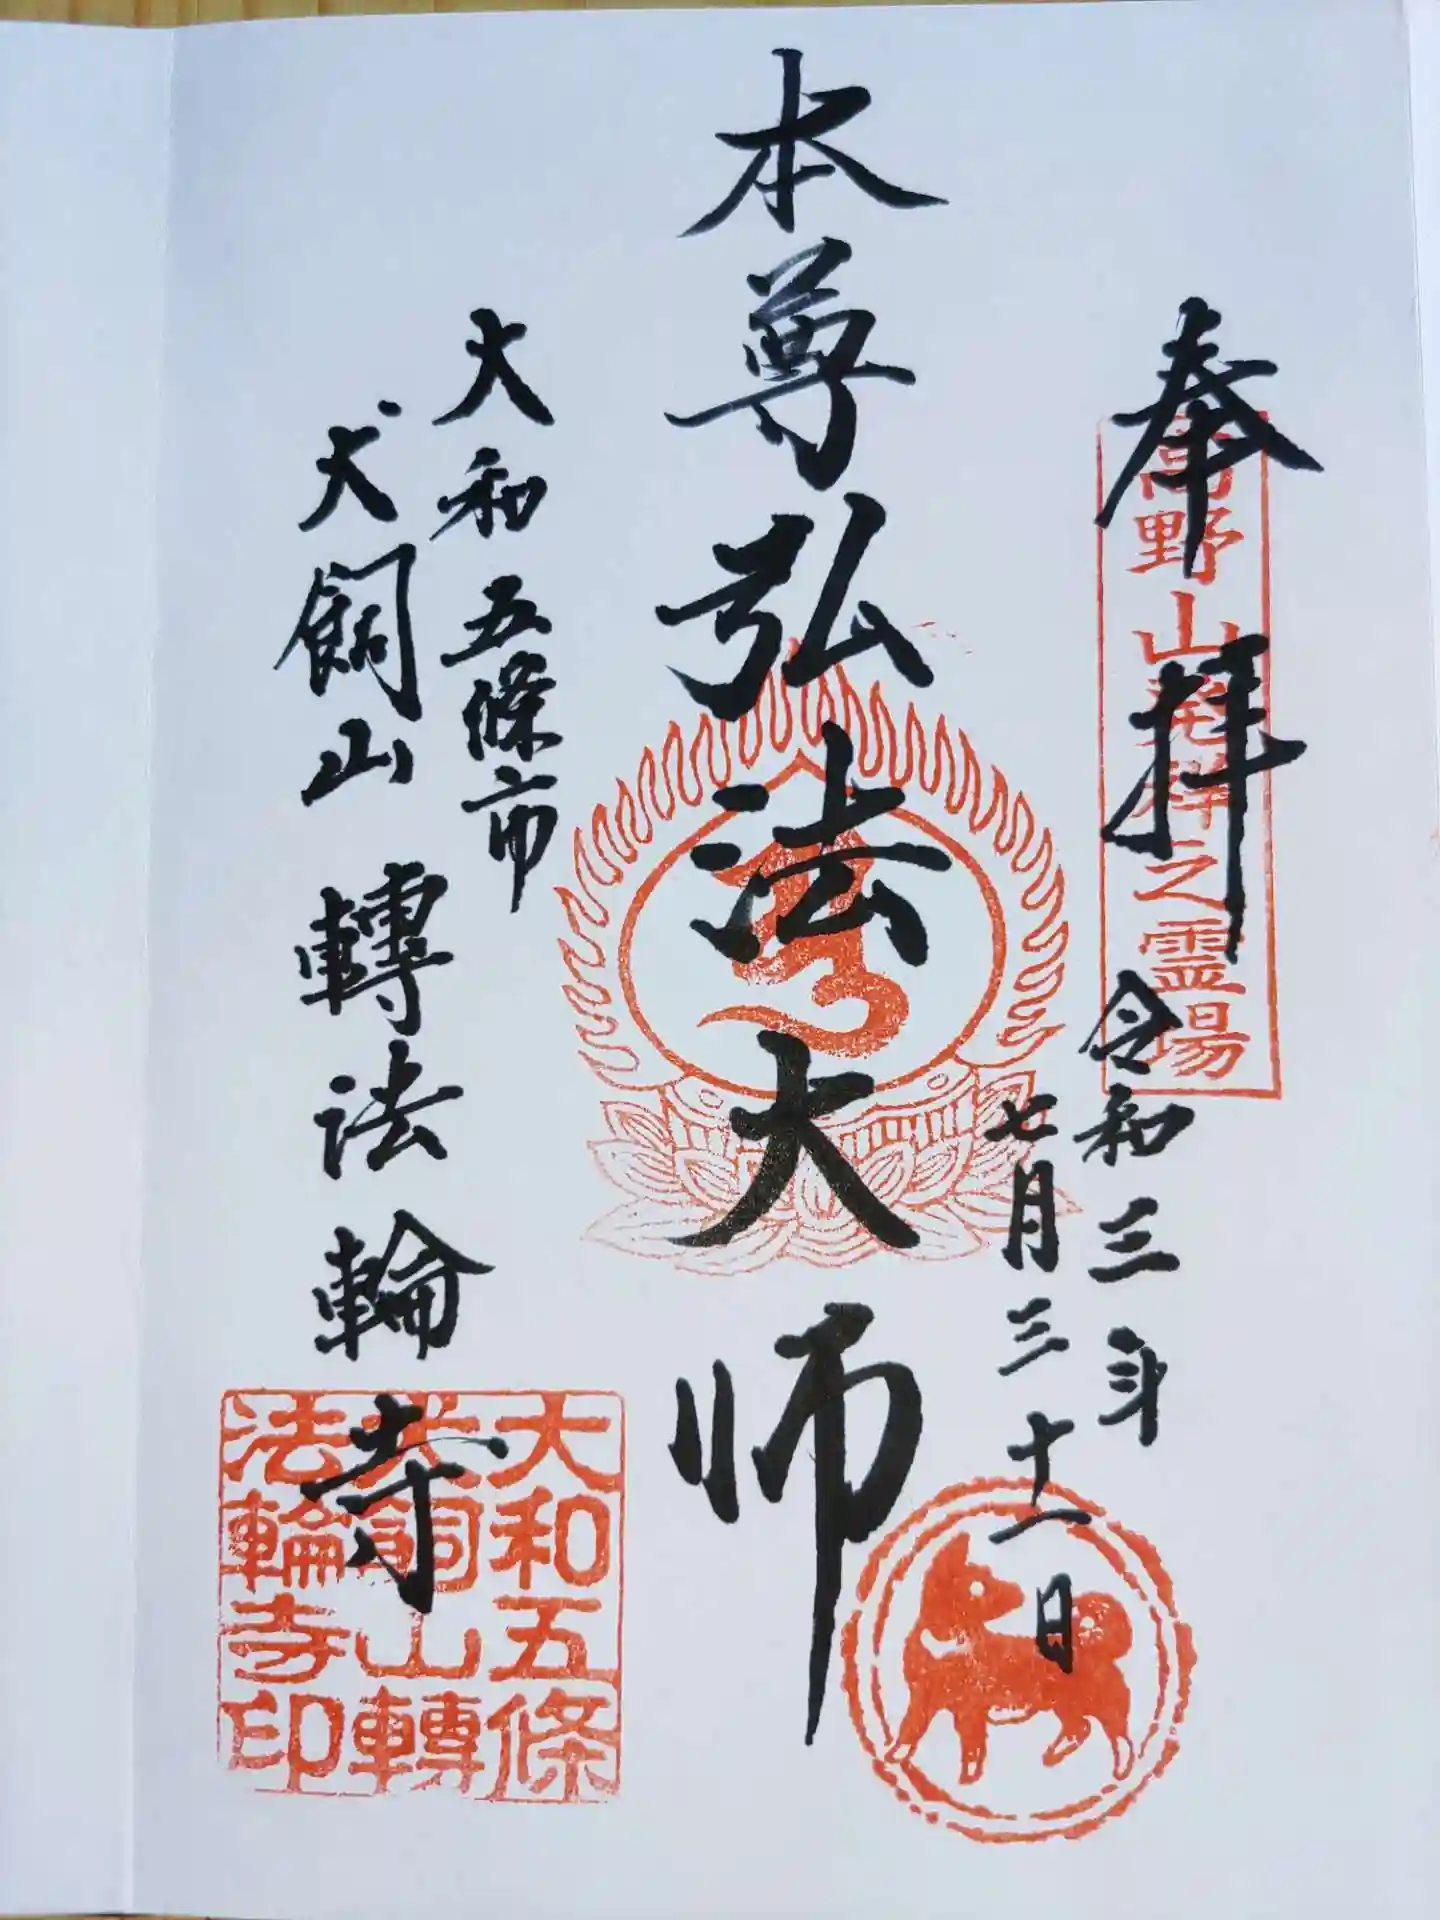 奉拝
高野山発祥之霊場
令和三年
七月三十一日
本尊弘法大师
大和五條市
犬飼山轉法輪寺
大和五條
犬飼山轉
法輪寺印